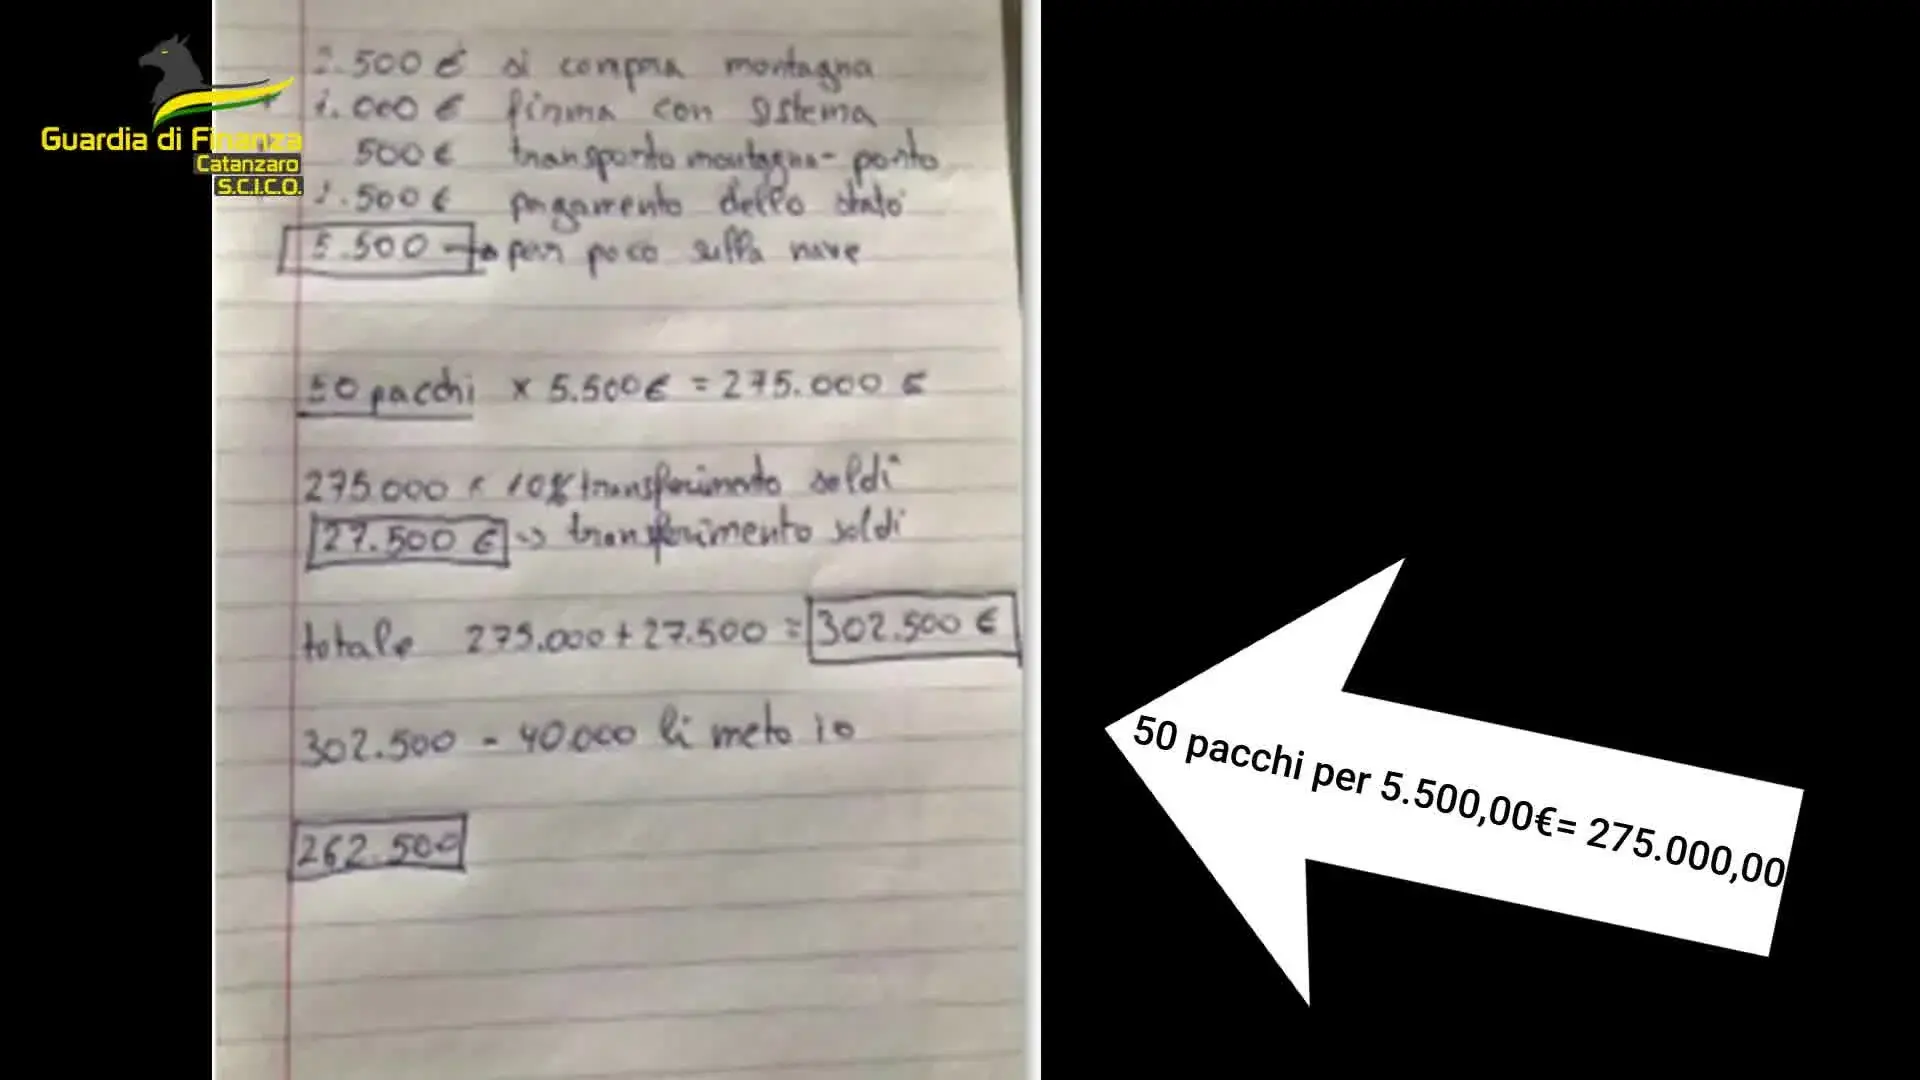 Guardia di Finanza
Catanzaro
S.C.I.C.O.
2.500 € si compra montagna
+ 1.000 € firma con sistema
500 € transporto montagna - porto
1.500 € pagamento dello stato
5.500 → per poco sulla nave
50 pacchi x 5.500 € = 275.000 €
275.000 x 10% transferimento soldi
27.500 € => transferimento soldi
totale 275.000 + 27.500 = 302.500 €
302.500 - 40.000 li meto io
262.500
50 pacchi per 5.500,00€= 275.000,00